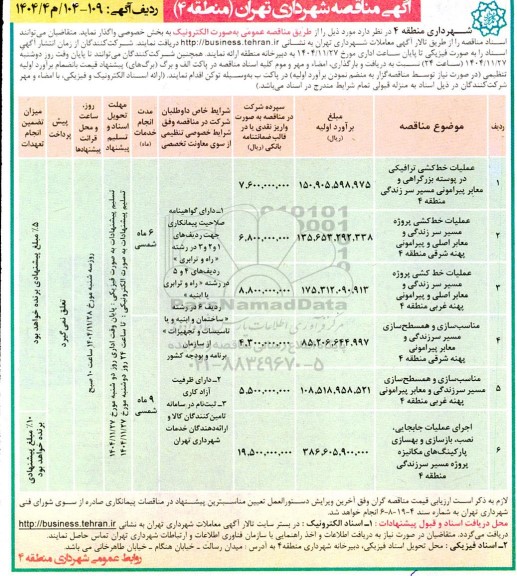 آگهی مناقصه شهرداری تهران (منطقه ۴)
ردیف آگهی: ۱۰۹-۱۰۴/م/۱۴۰۴/۴
شهرداری منطقه ۴ در نظر دارد مورد ذیل را از طریق مناقصه عمومی به‌صورت الکترونیک به بخش خصوصی واگذار نماید. متقاضیان می‌توانند
اسناد مناقصه را از طریق تالار آگهی معاملات شهرداری تهران به نشانی http://business.tehran.ir دریافت نمایند. شرکت‌کنندگان از زمان انتشار آگهی
ردیف
موضوع مناقصه
مبلغ برآورد اولیه (ریال)
سپرده شرکت در مناقصه به صورت واریز نقدی یا در قالب ضمانتنامه بانکی (ریال)
شرایط خاص داوطلبان شرکت در مناقصه وفق شرایط خصوصی تنظیمی از سوی معاونت تخصصی
مدت انجام خدمات (ماه)
مهلت تحویل اسناد و تسلیم پیشنهاد
روز، ساعت و محل قرائت پیشنهادها
پیش پرداخت
میزان تضمین انجام تعهدات
۱
عملیات خط‌کشی ترافیکی در پوسته بزرگراهی و معابر پیرامونی مسیر سر زندگی منطقه ۴
۱۵۰.۹۰۵.۵۹۸.۹۷۵
۷.۶۰۰.۰۰۰.۰۰۰
۲
عملیات خط‌کشی پروژه مسیر سر زندگی و معابر اصلی و پیرامونی پهنه شرقی منطقه ۴
۱۳۵.۶۵۳.۲۹۲.۳۳۸
۶.۸۰۰.۰۰۰.۰۰۰
۳
عملیات خط کشی پروژه مسیر سر زندگی و معابر اصلی و پیرامونی پهنه غربی منطقه ۴
۱۷۵.۳۱۲.۰۹۰.۹۱۳
۸.۸۰۰.۰۰۰.۰۰۰
۴
مناسب‌سازی و همسطح‌سازی مسیر سرزندگی و معابر پیرامونی پهنه شرقی منطقه ۴
۸۵.۲۰۶.۶۴۴.۹۹۷
۴.۳۰۰.۰۰۰.۰۰۰
۵
مناسب‌سازی و همسطح‌سازی مسیر سرزندگی و معابر پیرامونی پهنه غربی منطقه ۴
۱۰۸.۵۱۸.۹۵۸.۵۲۱
۵.۵۰۰.۰۰۰.۰۰۰
۶
اجرای عملیات جابجایی، نصب، بازسازی و بهسازی پارکینگ‌های مکانیزه پروژه مسیر سرزندگی منطقه ۴
۳۸۶.۶۰۵.۹۰۰.۰۰۰
۱۹.۵۰۰.۰۰۰.۰۰۰
۱ـ دارای گواهینامه صلاحیت پیمانکاری جهت ردیف‌های ۱ و ۲ و ۳ در رشته «راه و ترابری» ردیف‌های ۴ و ۵ در رشته «راه و ترابری یا ابنیه» ردیف ۶ در رشته «ساختمان و ابنیه و یا تاسیسات و تجهیزات» از سازمان برنامه و بودجه کشور
۲ـ دارای ظرفیت آزاد کاری
۳ـ ثبت‌نام در سامانه تامین‌کنندگان کالا و ارائه‌دهندگان خدمات شهرداری تهران
۶ ماه شمسی
۹ ماه شمسی
روز سه شنبه مورخ ۱۴۰۴/۱۱/۲۸ ساعت ۱۰ صبح
تعلق نمی‌گیرد
۵٪ مبلغ پیشنهادی برنده خواهد بود
۱۰٪ مبلغ پیشنهادی برنده خواهد بود
ParsNamadData
۰۲۱-۸۸۳۴۹۶۷۰-۵
لازم به ذکر است ارزیابی قیمت مناقصه گران وفق آخرین ویرایش دستورالعمل تعیین مناسب‌ترین پیشنهاد در مناقصات پیمانکاری صادره از سوی شورای فنی
شهرداری تهران به شماره سند ۴-۱۹-۸-۶ انجام خواهد شد.
محل دریافت اسناد و قبول پیشنهادات : ۱ـ اسناد الکترونیک : در بستر سایت تالار آگهی معاملات شهرداری تهران به نشانی http://business.tehran.ir
دریافت می‌گردد. متقاضیان در صورت نیاز به دریافت اطلاعات و اخذ راهنمایی با سازمان فناوری اطلاعات و ارتباطات شهرداری تهران تماس حاصل نمایند.
۲ـ اسناد فیزیکی : محل تحویل اسناد فیزیکی، دبیرخانه شهرداری منطقه ۴ به آدرس : میدان رسالت ـ خیابان هنگام ـ خیابان طاهرخانی می باشد.
روابط عمومی شهرداری منطقه ۴